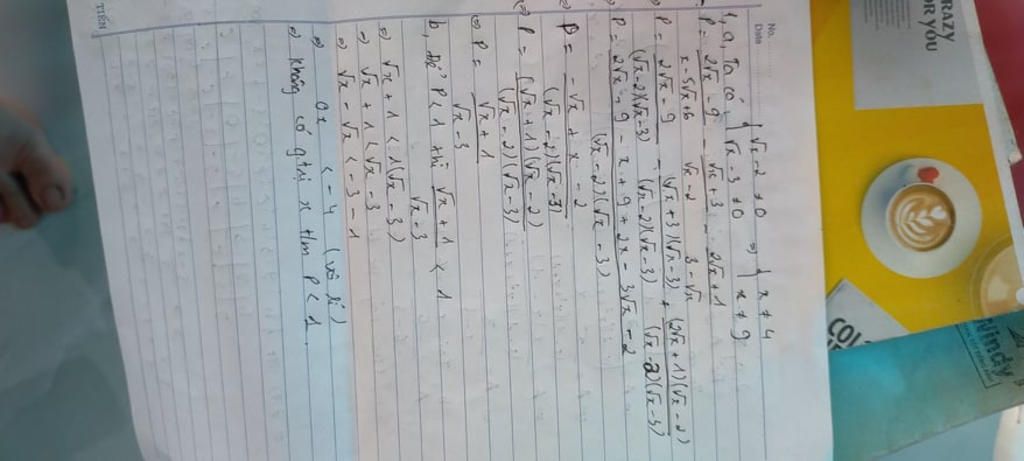 No.
Date
1, a, Ta có: { √x - 2 ≠ 0 => { x ≠ 4
√x - 3 ≠ 0 x ≠ 9
P = (2√x - 9)/(x - 5√x + 6) - (√x + 3)/(√x - 2) - (2√x + 1)/(3 - √x)
=> P = (2√x - 9)/((√x - 2)(√x - 3)) - ((√x + 3)(√x - 3))/((√x - 2)(√x - 3)) + ((2√x + 1)(√x - 2))/((√x - 2)(√x - 3))
P = (2√x - 9 - x + 9 + 2x - 3√x - 2)/((√x - 2)(√x - 3))
=> P = (-√x + x - 2)/((√x - 2)(√x - 3))
=> P = ((√x + 1)(√x - 2))/((√x - 2)(√x - 3))
=> P = (√x + 1)/(√x - 3)
b, Để P < 1 thì (√x + 1)/(√x - 3) < 1
=> √x + 1 < 1(√x - 3)
=> √x + 1 < √x - 3
=> √x - √x < -3 - 1
=> 0x < -4 (vô lí)
=> Không có gtrị x t/m P < 1.
TIẾN
CRAZY
FOR YOU
COL
Windy